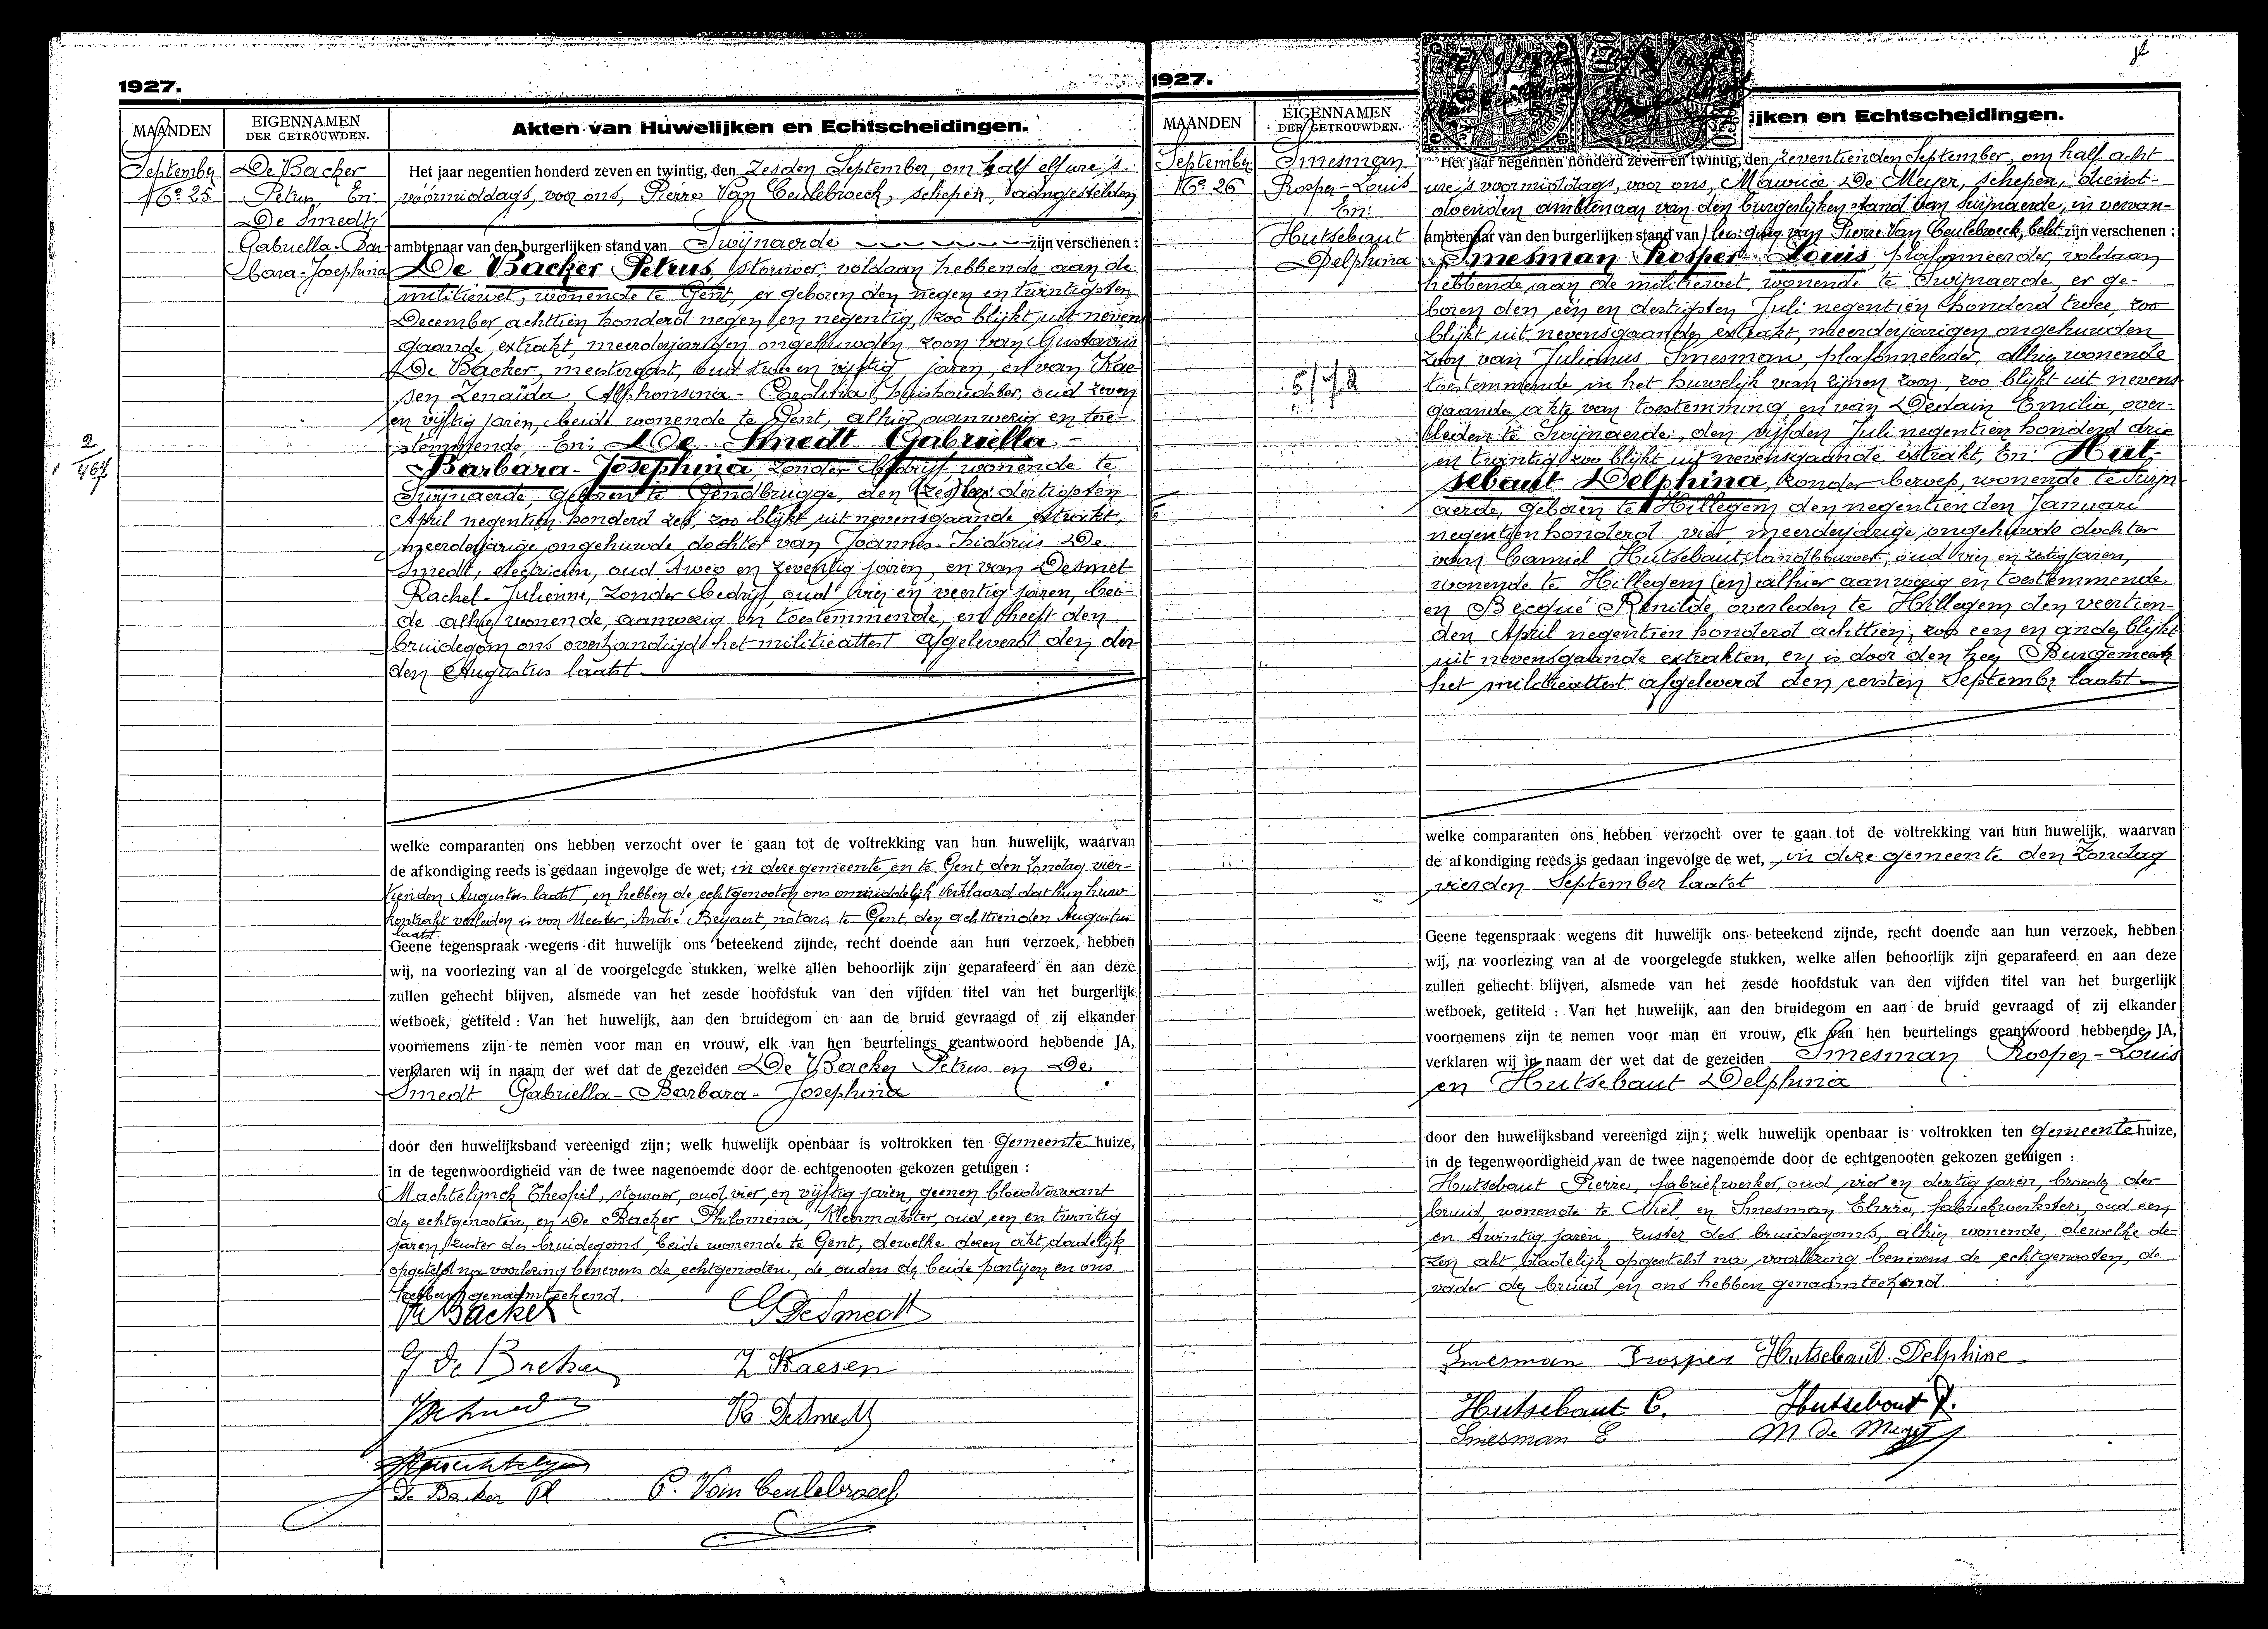 1927.
MAANDEN
EIGENNAMEN
DER GETROUWDEN.
Akten van Huwelijken en Echtscheidingen.
September
No 25
De Backer
Petrus, En:
De Smedt
Gabriella-Bar
bara-Josephina
Het jaar negentien honderd zeven en twintig, den zesden September, om half elf ure 's
vóórmiddags, voor ons, Pierre Van Ceulebroeck, schepen, aangestelden
ambtenaar van den burgerlijken stand van Swijnaerde zijn verschenen :
De Backer Petrus, stouwer, voldaan hebbende aan de
militiewet, wonende te Gent, er geboren den negen en twintigsten
December achttien honderd negen en negentig, zoo blijkt uit nevens
gaande extrakt, meerderjarigen ongehuwden zoon van Gustavus
De Backer, meestergast, oud twee en vijftig jaren, en van Kae-
sen Zenaïda, Alphonsina-Cardina, huishoudster, oud zeven
en vijftig jaren, beide wonende te Gent, alhier aanwezig en toe-
stemmende, En: De Smedt Gabriella-
Barbara-Josephina, zonder bedrijf, wonende te
Swijnaerde, geboren te Gendbrugge, den (zes) lees: dertigsten
April negentien honderd zes, zoo blijkt uit nevensgaande extrakt,
meerderjarige ongehuwde dochter van Joannes-Isidorus De
Smedt, electricien, oud twee en zeventig jaren, en van Desmet
Rachel-Julienne, zonder bedrijf, oud drij en veertig jaren, bei-
de alhier wonende, aanwezig en toestemmende, en heeft den
bruidegom ons overhandigd het militieattest afgeleverd den der-
den Augustus laatst
2
467
welke comparanten ons hebben verzocht over te gaan tot de voltrekking van hun huwelijk, waarvan
de afkondiging reeds is gedaan ingevolge de wet, in deze gemeente en te Gent, den Zondag vier-
tienden Augustus laatst, en hebben de echtgenooten ons onmiddelijk verklaard dat hun huw
kontrakt verleden is voor Meester, André Beyaert, notaris te Gent, den achttienden Augustus
laatst.
Geene tegenspraak wegens dit huwelijk ons beteekend zijnde, recht doende aan hun verzoek, hebben
wij, na voorlezing van al de voorgelegde stukken, welke allen behoorlijk zijn geparafeerd en aan deze
zullen gehecht blijven, alsmede van het zesde hoofdstuk van den vijfden titel van het burgerlijk
wetboek, getiteld : Van het huwelijk, aan den bruidegom en aan de bruid gevraagd of zij elkander
voornemens zijn te nemen voor man en vrouw, elk van hen beurtelings geantwoord hebbende JA,
verklaren wij in naam der wet dat de gezeiden De Backer Petrus en De
Smedt Gabriella-Barbara-Josephina
door den huwelijksband vereenigd zijn; welk huwelijk openbaar is voltrokken ten Gemeente huize,
in de tegenwoordigheid van de twee nagenoemde door de echtgenooten gekozen getuigen :
Machtelijnck Theofiel, stouwer, oud vier en vijftig jaren, geenen bloedverwant
der echtgenooten, en De Backer Philomena, kleermaakster, oud een en twintig
jaren, zuster des bruidegoms, beide wonende te Gent, dewelke dezen akt dadelijk
opgesteld na voorlezing benevens de echtgenooten, de ouders der beide partijen en ons
hebben genaamteekend.
De Backer
G DeSmedt
G De Backer
Z Kaesen
R DeSmedt
De Backer Ph
P. Van Ceulebroeck
1927.
MAANDEN
EIGENNAMEN
DER GETROUWDEN.
ijken en Echtscheidingen.
September
No 26
Smesman,
Prosper-Louis
En:
Hutsebaut
Delphina
5/42
Het jaar negentien honderd zeven en twintig, den zeventienden September, om half acht
ure 's voormiddags, voor ons, Maurice De Meyer, schepen, dienst-
doenden ambtenaar van den burgerlijken stand van Swijnaerde, in vervan-
ambtenaar van den burgerlijken stand van lees: ging van Pierre Van Ceulebroeck, belet: zijn verschenen :
Smesman Prosper-Louis, plafonneerder, voldaan
hebbende aan de militiewet, wonende te Swijnaerde, er ge-
boren den een en dertigsten Juli negentien honderd twee, zoo
blijkt uit nevensgaande extrakt, meerderjarigen ongehuwden
zoon van Julianus Smesman, plafonneerder, alhier wonende
toestemmende in het huwelijk van zijnen zoon, zoo blijkt uit nevens
gaande akte van toestemming en van Dedain Emilia, over-
leden te Swijnaerde, den vijfden Juli negentien honderd drie
en twintig, zoo blijkt uit nevensgaande extrakt, En: Hut-
sebaut Delphina, zonder beroep, wonende te Swijn
aerde, geboren te Hillegem den negentienden Januari
negentien honderd vier, meerderjarige ongehuwde dochter
van Camiel Hutsebaut, landbouwer, oud drij en zestig jaren,
wonende te Hillegem (en) alhier aanwezig en toestemmende
en Becqué Renilde, overleden te Hillegem den veertien-
den April negentien honderd achttien, zoo een en ander blijkt
uit nevensgaande extrakten, er is door den heer Burgemeester
het militieattest afgeleverd den eersten September laatst
welke comparanten ons hebben verzocht over te gaan tot de voltrekking van hun huwelijk, waarvan
de afkondiging reeds is gedaan ingevolge de wet, in deze gemeente den Zondag
vierden September laatst
Geene tegenspraak wegens dit huwelijk ons beteekend zijnde, recht doende aan hun verzoek, hebben
wij, na voorlezing van al de voorgelegde stukken, welke allen behoorlijk zijn geparafeerd en aan deze
zullen gehecht blijven, alsmede van het zesde hoofdstuk van den vijfden titel van het burgerlijk
wetboek, getiteld : Van het huwelijk, aan den bruidegom en aan de bruid gevraagd of zij elkander
voornemens zijn te nemen voor man en vrouw, elk van hen beurtelings geantwoord hebbende JA,
verklaren wij in naam der wet dat de gezeiden Smesman Prosper-Louis
en Hutsebaut Delphina
door den huwelijksband vereenigd zijn; welk huwelijk openbaar is voltrokken ten gemeente huize,
in de tegenwoordigheid van de twee nagenoemde door de echtgenooten gekozen getuigen :
Hutsebaut Pierre, fabriekwerker, oud vier en dertig jaren, broeder der
bruid, wonende te Niel, en Smesman Elvire, fabriekwerkster, oud een
en twintig jaren, zuster des bruidegoms, alhier wonende, dewelke de-
zen akt dadelijk opgesteld na voorlezing benevens de echtgenooten, de
vader der bruid en ons hebben genaamteekend.
Smesman Prosper Hutsebaut Delphine
Hutsebaut C. Hutsebaut P.
Smesman E M De Meyer